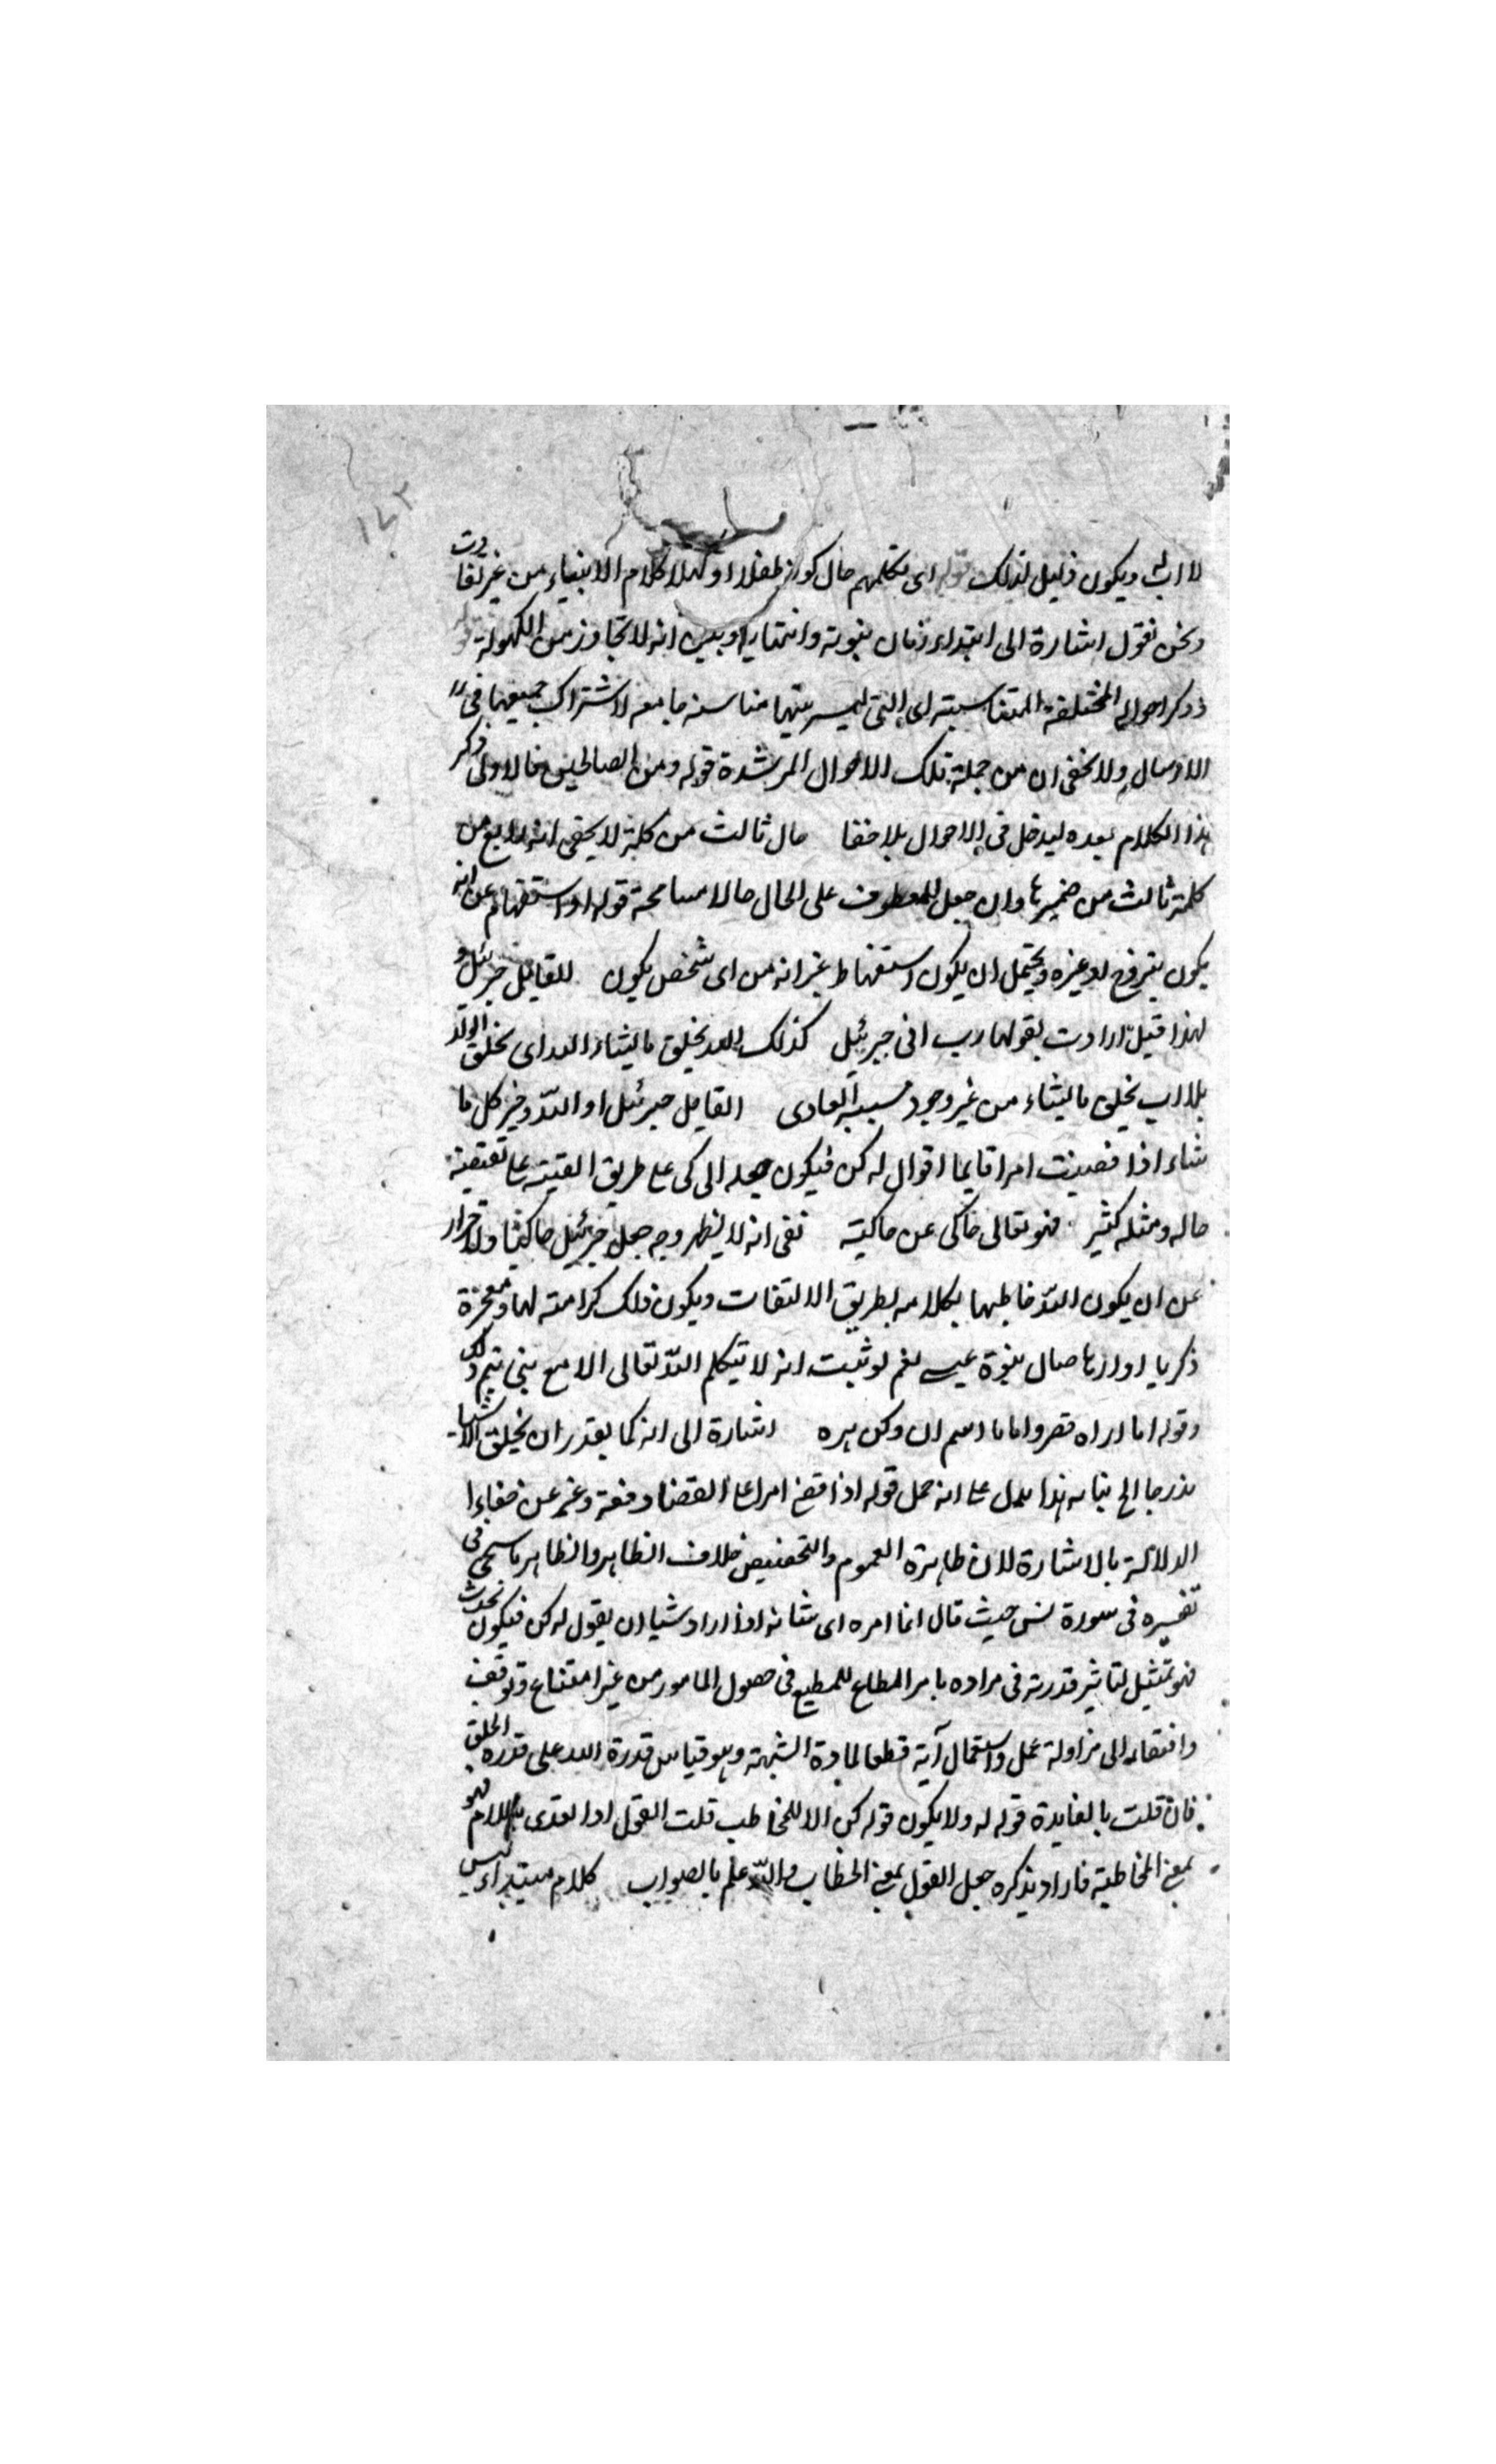 ١٤٢
لا اب له ويكون دليل لذلك قوله اى تكلمهم حال كونه طفلا او كهلا كلام الانبياء من غير تفاوت
ونحن نقول اشارة الى ابتداء زمان نبوته وانتهائه وبين انه لا تجاوز من الكهولة
ذكر احواله المختلفة المتناسبة اى التى ليس بينها مناسبة جامعه لاشتراك جميعها فى
الارسال ولا يخفى ان من جملة تلك الاحوال المرشدة قوله ومن الصالحين فالاولى ذكر
هذا الكلام بعده ليدخل فى الاحوال بلا خفا حال ثالث من كلمة لا يخفى انه رابع من
كلمة ثالث من ضميرها وان جعل المعطوف على الحال حالا مسامحة قوله او استفهام عن انه
يكون بتزوج او غيره ويحتمل ان يكون استفهاما غير انه من اى شخص يكون القايل جبرئيل و
لهذا قيل ارادت بقولها رب انى جبرئيل كذلك الله يخلق ما يشاء الله اى يخلق الولد
بلا اب يخلق ما يشاء من غير وجود سببه العادى القايل جبرئيل او الله وخير كل ما
شاء اذا قضيت امرا قايما اقوال له كن فيكون جعله الى كى على طريق الغيبة على تقتضيه
حاله ومثله كثير فهو تعالى حاكى عن حاكيته نفى انه لا يظهر وجه جعل جبرئيل حاكيا ولاحرار
عن ان يكون الله خاطبها بكلامه بطريق الالتفات ويكون ذلك كرامته لها ومعجزة
ذكريا او ارهاصا ل نبوة عيسى نعم لو ثبت انه لا يتكلم الله تعالى الا مع نبى تم ذلك
وقوله اما اراه قصروا ما ادسم ان وكن بره اشارة الى انه كما يقدر ان يخلق الاشياء
مدرجا الخ بنائه هذا يدل على انه حمل قوله اذا قضى امرا على القضا دفعة وغير عن خفاءا
الدلالة بالاشارة لان ظاهرة العموم والتخصيص خلاف الظاهر والظاهر ما سيجى فى
تفسيره فى سورة يس حيث قال انما امره اى شانه اذا اراد شيا ان يقول له كن فيكون يحدث
فهو تمثيل لتاثير قدرته فى مراده بامر المطاع للمطيع فى حصول المامور من غير امتناع وتوقف
وافتقار الى مزاولة عمل واستعمال آية قطعا لمادة الشبهة وهو قياس قدرة الله على قدرة الخلق
فان قلت بالفايدة قوله له ولا يكون قوله كن الا للمخاطب قلت القول اذا تعدى باللام فهو
بمعنى المخاطبة فاراد بذكره جعل القول بمعنى الخطاب والله علم بالصواب كلام مبتداء ليس